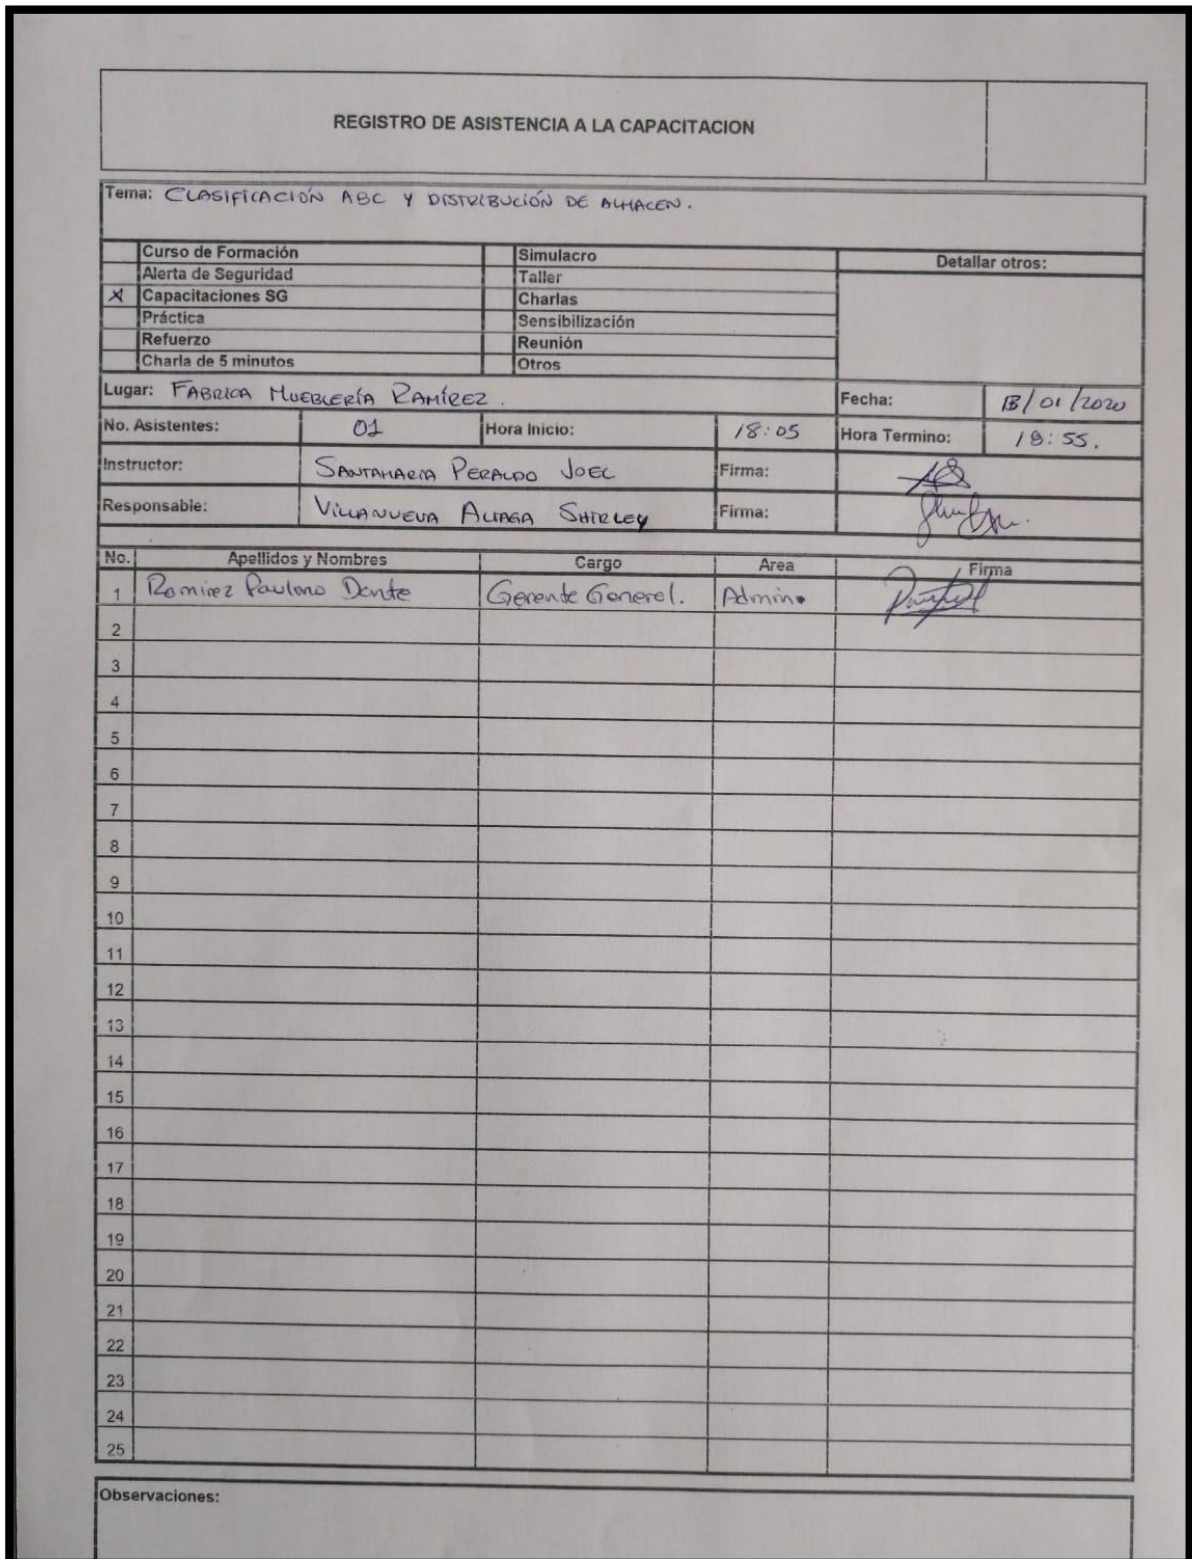 REGISTRO DE ASISTENCIA A LA CAPACITACION
Tema: CLASIFICACIÓN ABC Y DISTRIBUCIÓN DE ALMACEN.
Curso de Formación Simulacro Detallar otros:
Alerta de Seguridad Taller
X Capacitaciones SG Charlas
Práctica Sensibilización
Refuerzo Reunión
Charla de 5 minutos Otros
Lugar: FABRICA MUEBLERÍA RAMÍREZ. Fecha: /01/2020
No. Asistentes: 01 Hora Inicio: 18:05 Hora Termino: 18:55.
Instructor: SANTAMARIA JOEL Firma:
Responsable: VILLANUEVA ALIAGA SHIRLEY Firma:
No. Apellidos y Nombres Cargo Area Firma
1 Ramirez Dante Gerente General. Admin.
2
3
4
5
6
7
8
9
10
11
12
13
14
15
16
17
18
19
20
21
22
23
24
25
Observaciones: